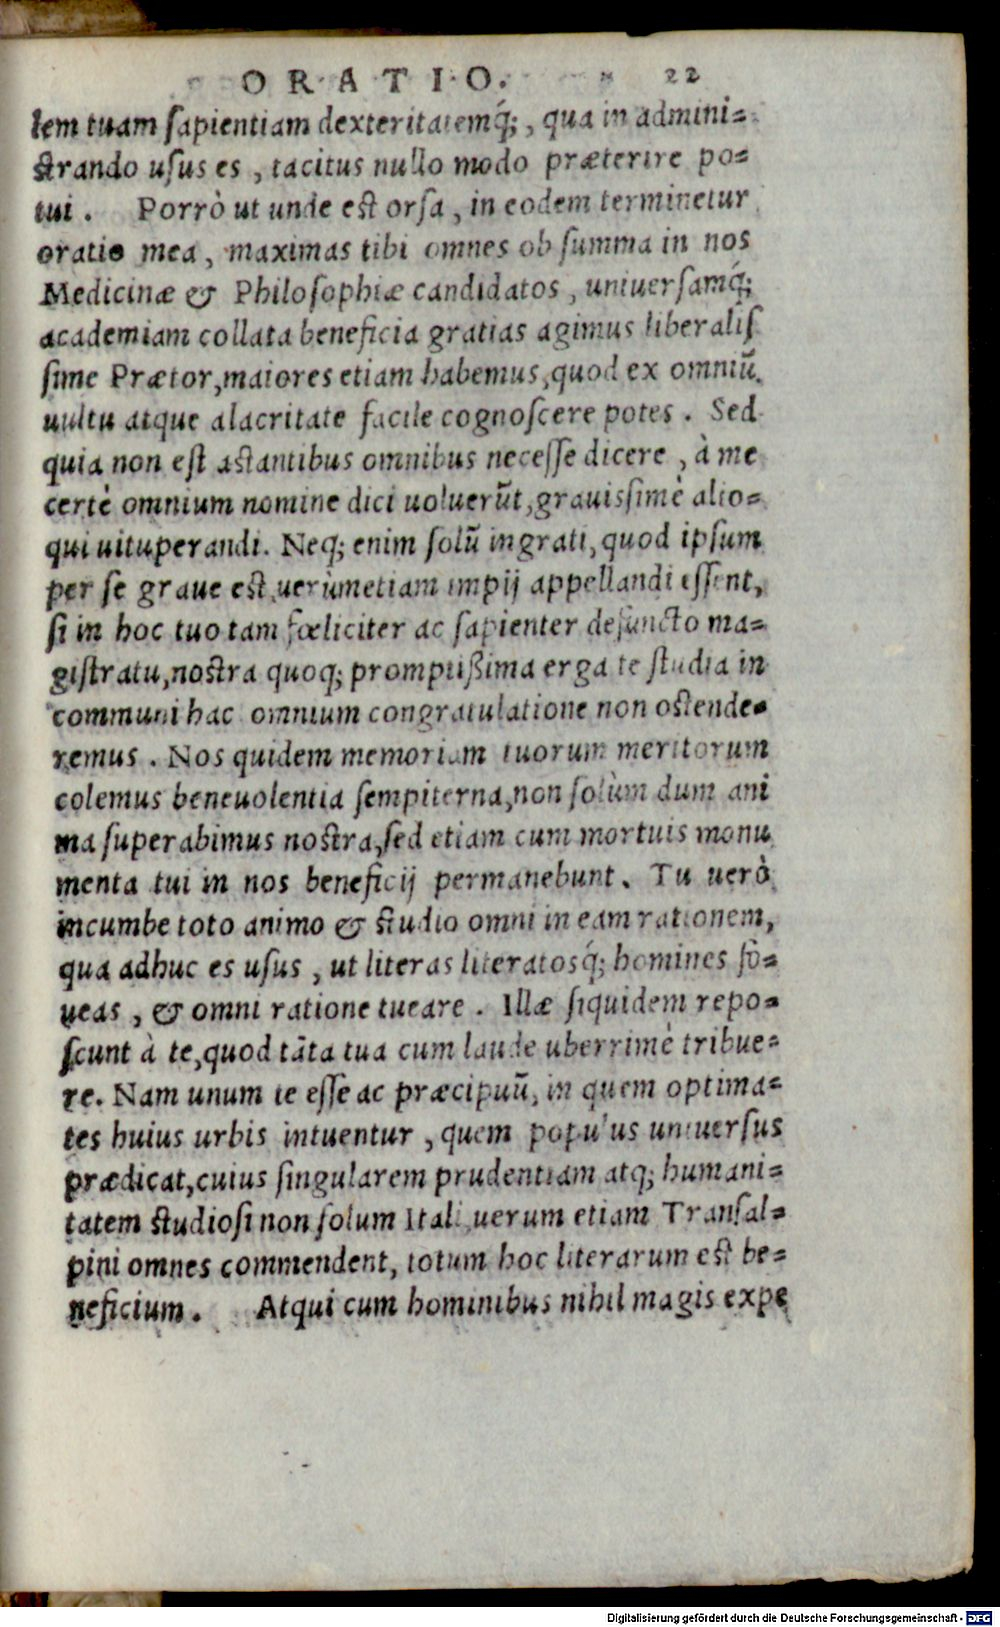 ORATIO. 22
lem tuam ſapientiam dexteritatemq́;, qua in admini-
ſtrando uſus es, tacitus nullo modo præterire po-
tui. Porrò ut unde eſt orſa, in eodem terminetur
oratio mea, maximas tibi omnes ob ſumma in nos
Medicinæ & Philoſophiæ candidatos, uniuerſamq́;
academiam collata beneficia gratias agimus liberaliſ
ſime Prætor, maiores etiam habemus, quod ex omniũ
uultu atque alacritate facile cognoſcere potes. Sed
quia non eſt aſtantibus omnibus neceſſe dicere, à me
certè omnium nomine dici uoluerũt, grauiſſimè alio-
qui uituperandi. Neq; enim ſolũ ingrati, quod ipſum
per ſe graue eſt, uerùmetiam impij appellandi eſſent,
ſi in hoc tuo tam fœliciter ac ſapienter defuncto ma-
giſtratu, noſtra quoq; promptißima erga te ſtudia in
communi hac omnium congratulatione non oſtende-
remus. Nos quidem memoriam tuorum meritorum
colemus beneuolentia ſempiterna, non ſolùm dum ani
ma ſuperabimus noſtra, ſed etiam cum mortuis monu
menta tui in nos beneficij permanebunt. Tu uerò
incumbe toto animo & ſtudio omni in eam rationem,
qua adhuc es uſus, ut literas literatosq́; homines fo-
ueas, & omni ratione tueare. Illæ ſiquidem repo-
ſcunt à te, quod tãta tua cum laude uberrimè tribue-
re. Nam unum te eſſe ac præcipuũ, in quem optima-
tes huius urbis intuentur, quem populus uniuerſus
prædicat, cuius ſingularem prudentiam atq; humani-
tatem ſtudioſi non ſolum Itali, uerum etiam Tranſal-
pini omnes commendent, totum hoc literarum eſt be-
neficium. Atqui cum hominibus nihil magis expe
Digitalisierung gefördert durch die Deutsche Forschungsgemeinschaft - DFG